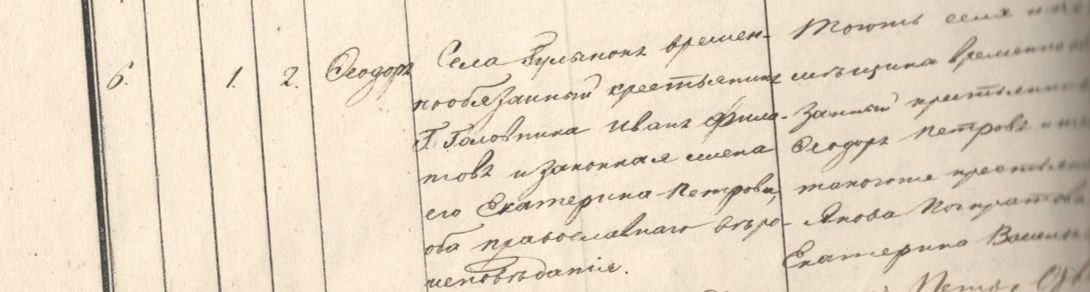 6. 1. 2. Ѳеодоръ
Села Гулынокъ времен-
нообязанный крестьянинъ
Г. Головнина Иванъ Фила-
товъ и законная жена
его Екатерина Петрова,
оба православнаго вѣро-
исповѣданія.
Тогожъ села
временно
занный крестьянинъ
Ѳеодоръ Петровъ и
такогоже крестьян
Якова
Екатерина Василь
Петръ